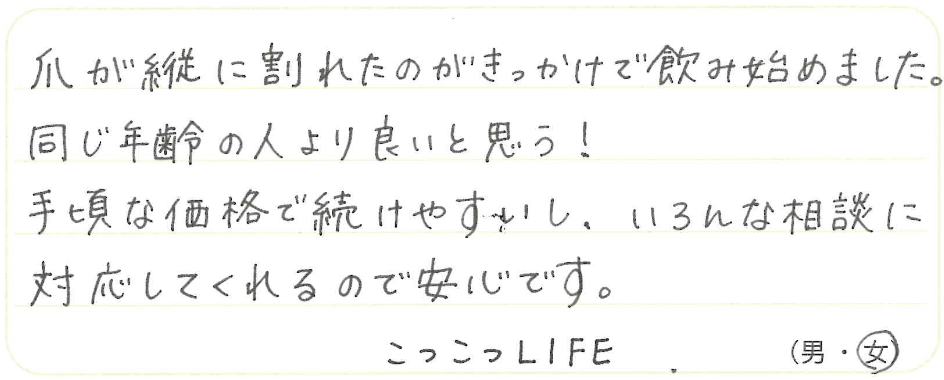 爪が縦に割れたのがきっかけで飲み始めました。
同じ年齢の人より良いと思う!
手頃な価格で続けやすいし、いろんな相談に
対応してくれるので安心です。
こつこつLIFE (男・女)